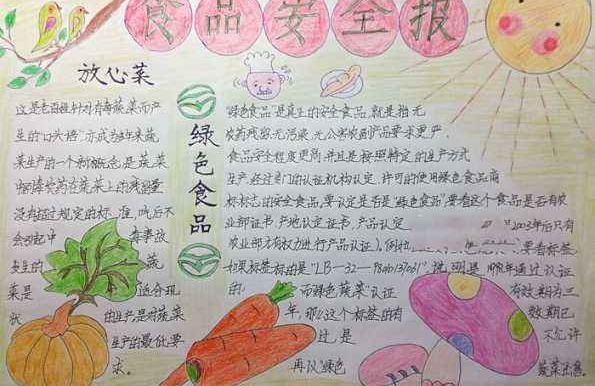 食品安全报
放心菜
这是老百姓针对有毒蔬菜而产
生的口头语,亦成为近年来蔬
菜生产的一个新概念是蔬菜
中的农药在蔬菜上的残留量
没有超过规定的标准,吃后不
会引起中毒事故
发生的蔬
菜是适合现
状的生产是对蔬菜
生产的最低要
求。
绿色食品
"绿色食品"是真正的安全食品,就是指无
农药残留,无污染,无公害
食品安全程度更高并且是按照特定的生产方式
生产,经过专门的认证机构认定,许可的使用绿色食品商
标标志的安全食品,要认定是否是"绿色食品"要看这个食品是否有农
业部证书,产地认定证书,产品认定 2003年后只有
农业部才有权力进行产品认证),例如 要看标签
如果标签标的是"LB-32- 说明是 通过认证
的 而"绿色蔬菜"认证 有效期为三
年,那么这个标签的有 效期已
过是 不允许
再以"绿色 蔬菜出售。